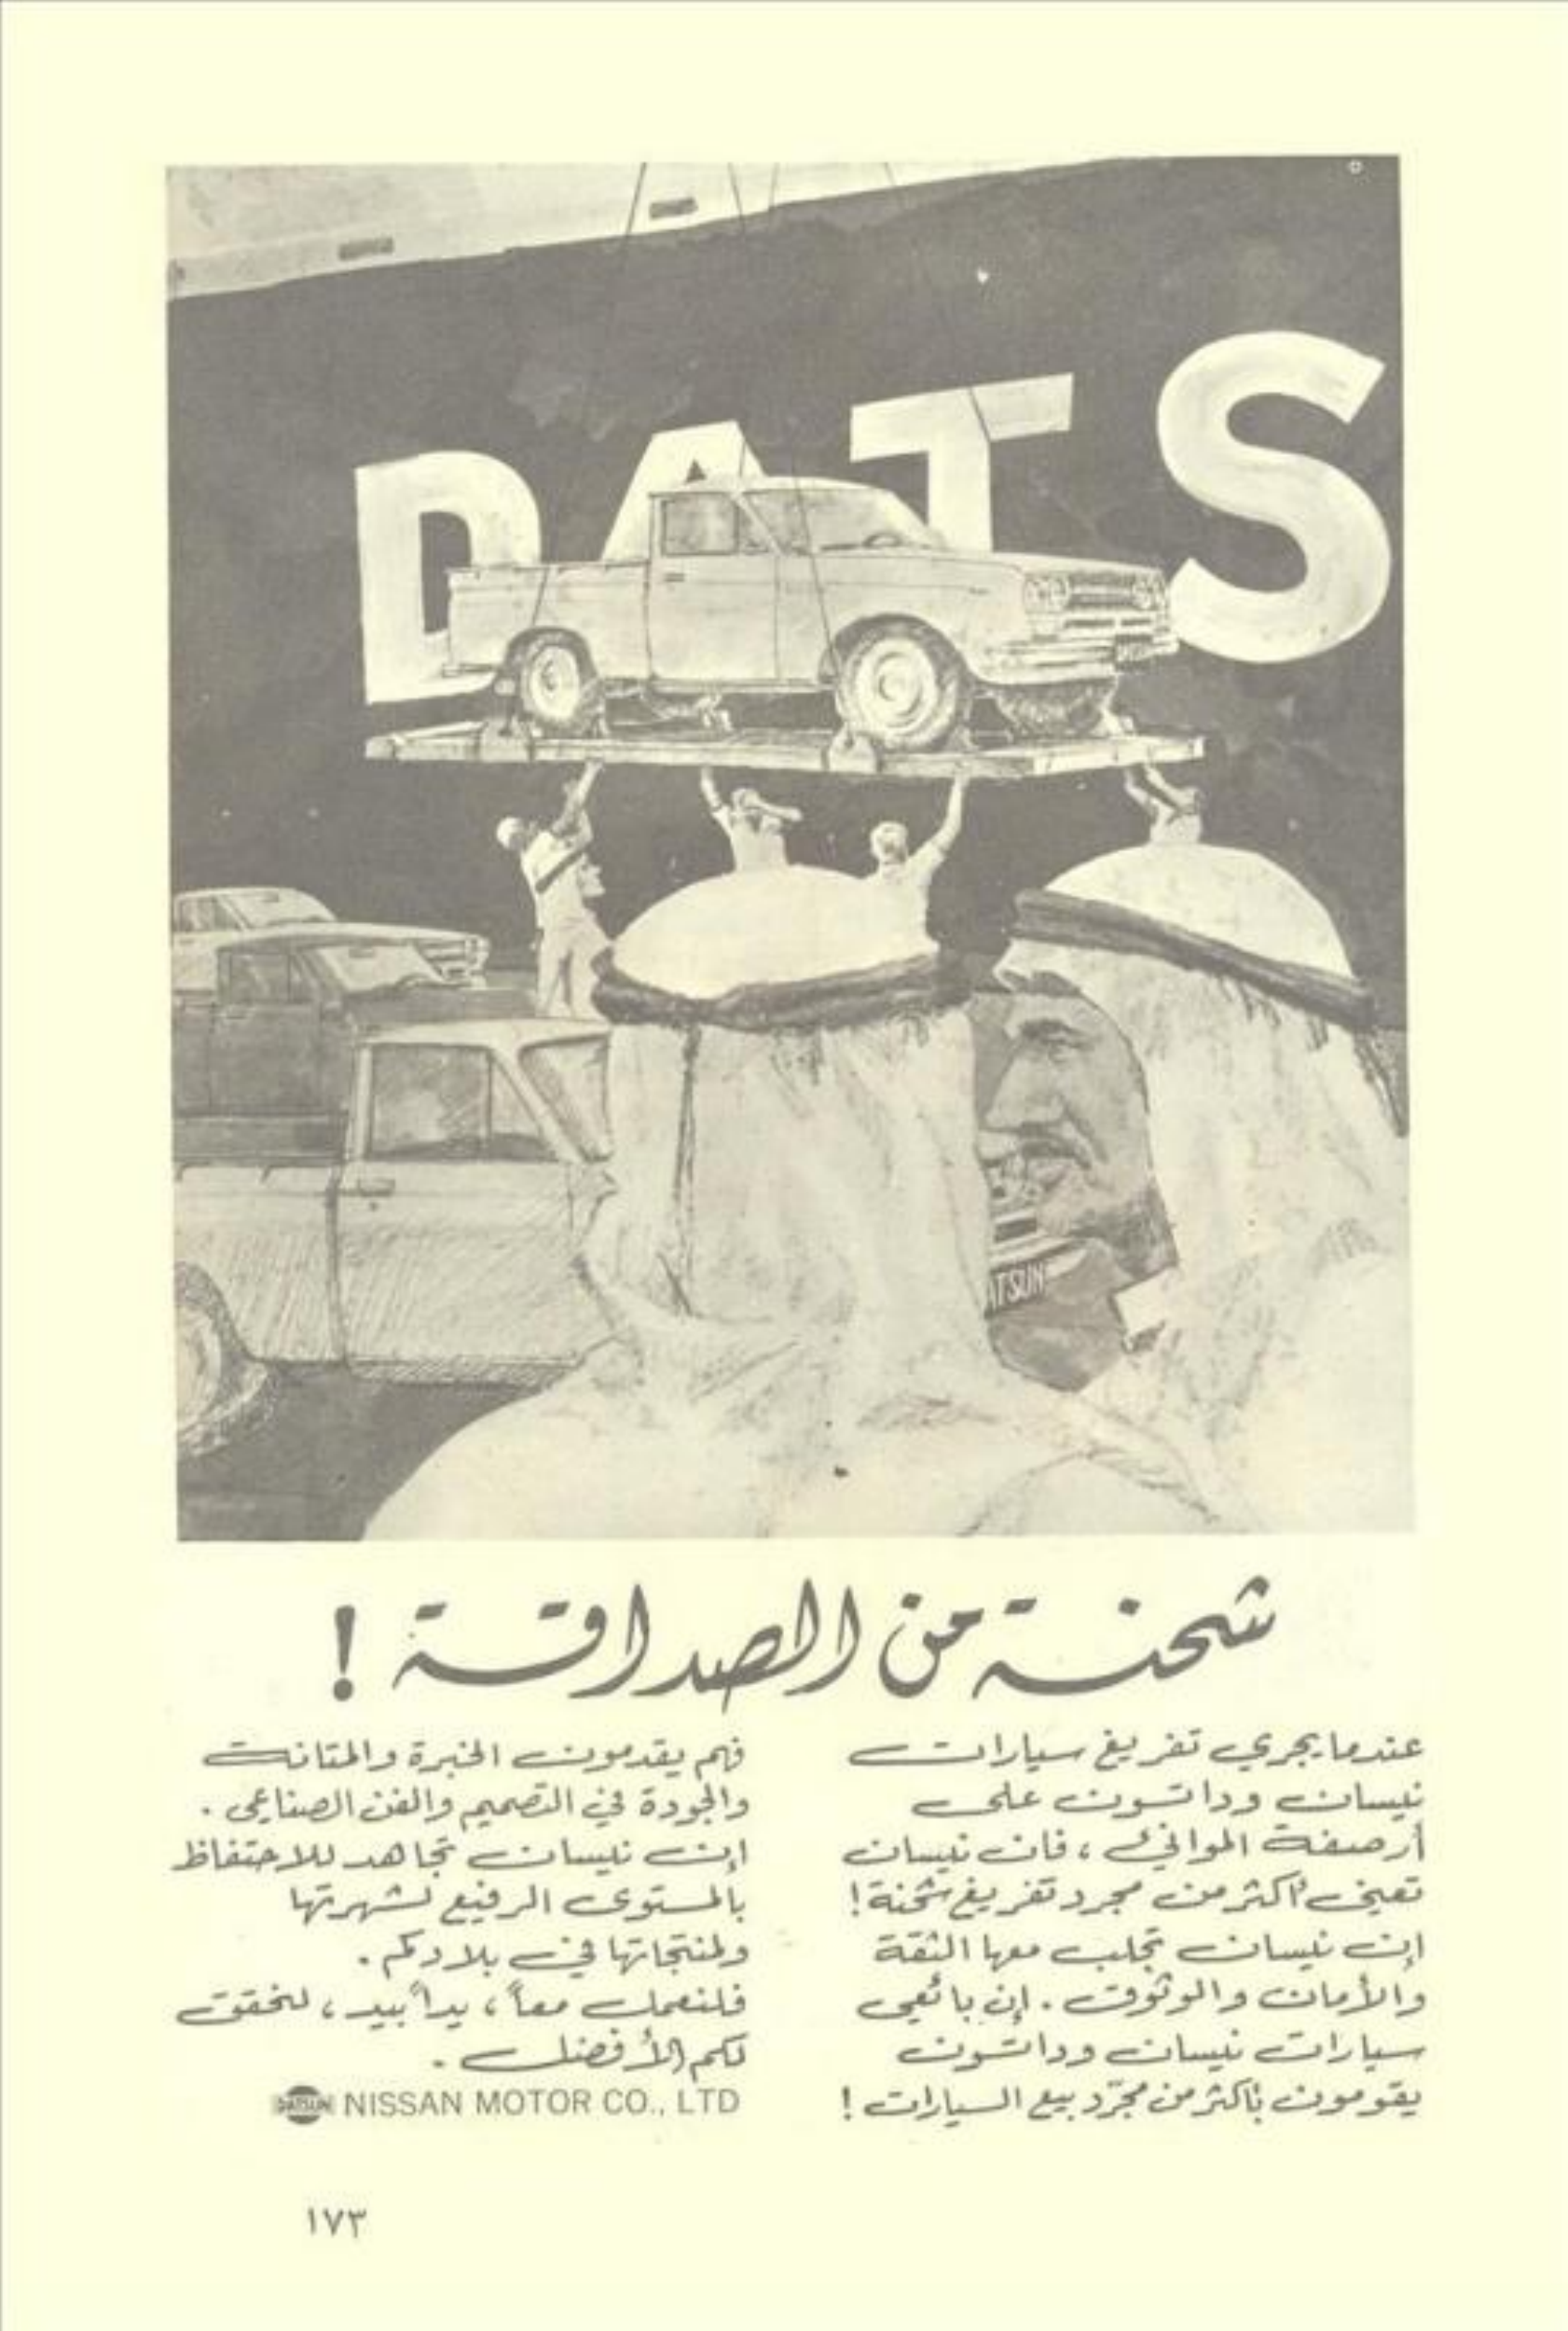 DATS
DATSUN
ATSUN
شحنة من الصداقة !
عندما يجري تفريغ سيارات
نيسان وداتسون على
أرصفة الموانئ ، فان نيسان
تعني أكثر من مجرد تفريغ شحنة !
إن نيسان تجلب معها الثقة
والأمان والوثوق . إن بائعي
سيارات نيسان وداتسون
يقومون بأكثر من مجرّد بيع السيارات !
فهم يقدمون الخبرة والمتانة
والجودة في التصميم والفن الصناعي .
إن نيسان تجاهد للاحتفاظ
بالمستوى الرفيع لشهرتها
ولمنتجاتها في بلادكم .
فلنعمل معاً ، يداً بيد ، لنحقق
لكم الأفضل .
DATSUN NISSAN MOTOR CO., LTD
١٧٣